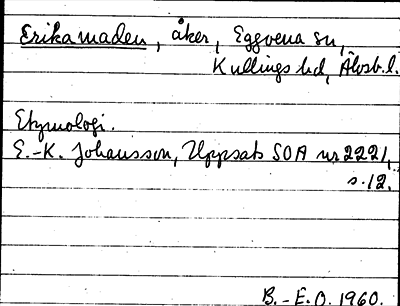 Erikamaden, åker, Eggvena sn,
Kullings hd, Älvsb. l.
Etymologi.
E.-K. Johansson, Uppsats SOA nr 2221,
s. 12.
B.-E. O. 1960.